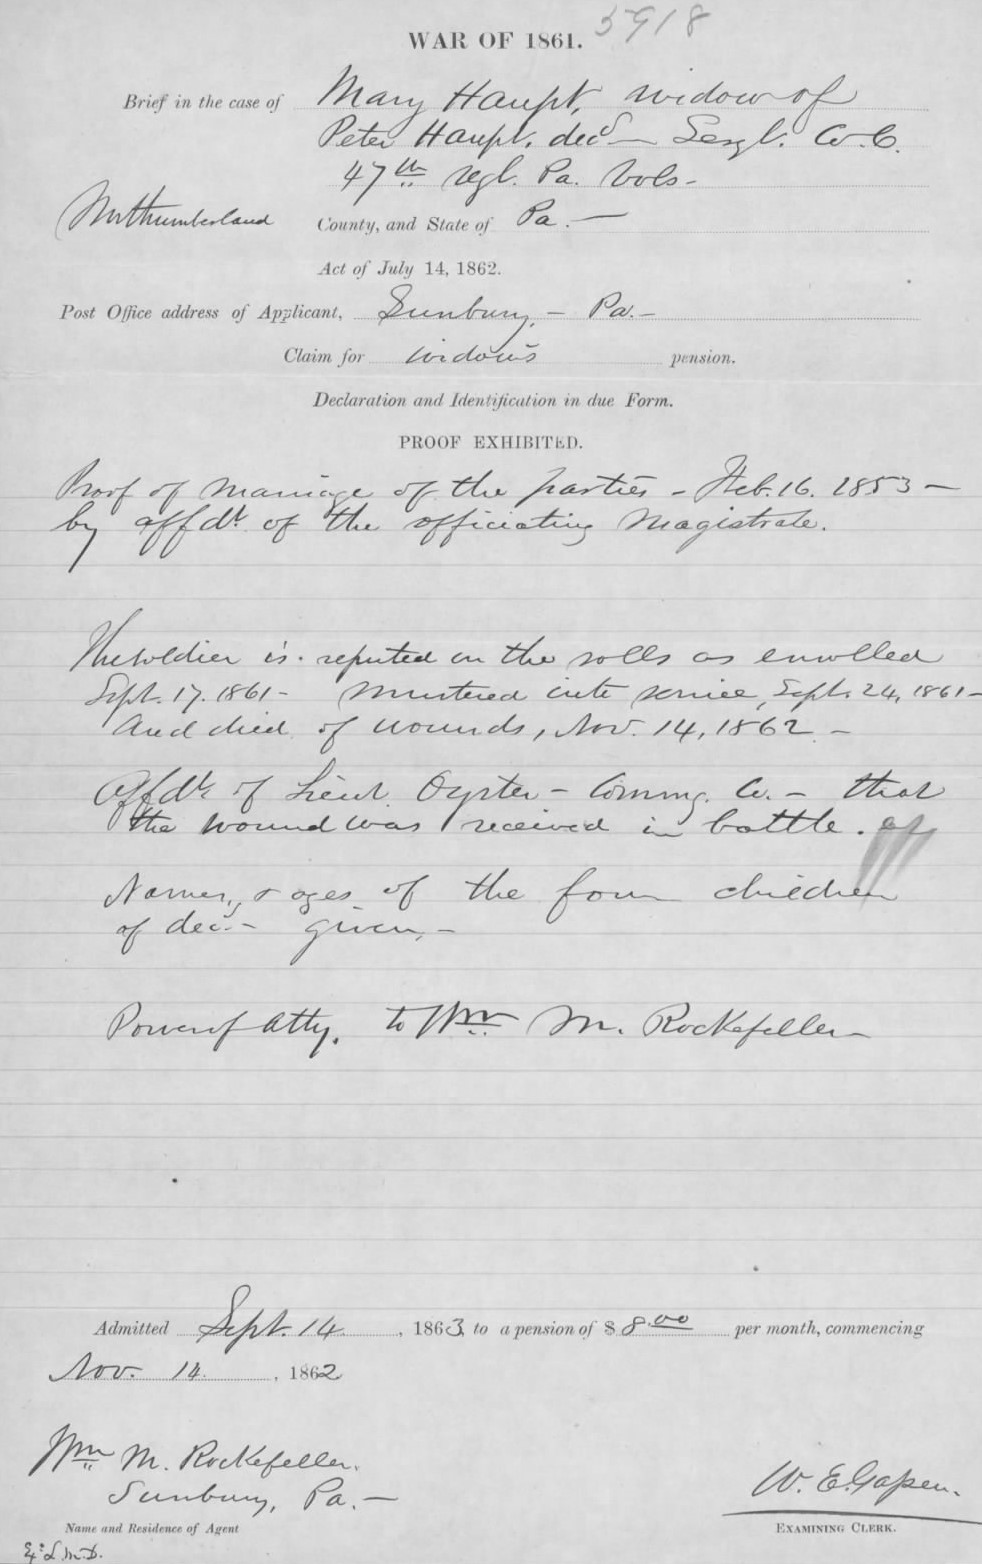 5918
WAR OF 1861.
Brief in the case of Mary Haupt, widow of
Peter Haupt, decd — Sergt. Co. C.
47th regt. Pa. Vols -
Northumberland County, and State of Pa. —
Act of July 14, 1862.
Post Office address of Applicant, Sunbury, - Pa. -
Claim for widow's pension.
Declaration and Identification in due Form.
PROOF EXHIBITED.
Proof of marriage of the parties - Feb. 16. 1853 -
by affdt. of the officiating Magistrate.
The soldier is reported on the rolls as enrolled
Sept. 17. 1861 - Mustered into service, Sept. 24, 1861 -
And died of wounds, Nov. 14, 1862 -
Affdt. of Lieut. Oyster - Commg. Co. - that
the wound was received in battle.
Names, & ages of the four children
of decd. - given, -
Power of Atty. to Wm M. Rockefeller
Admitted Sept. 14, 1863, to a pension of $ 8.00 per month, commencing
Nov. 14, 1862
Wm M. Rockefeller.
Sunbury, Pa. -
W. E. Gapen.
Name and Residence of Agent
EXAMINING CLERK.